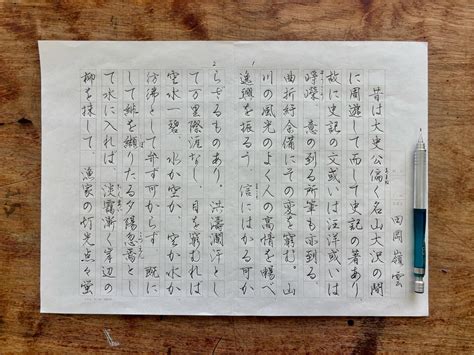 田岡嶺雲
昔は大史公偏く名山大沢の間
に周遊して而して史記の著あり
故に史記の文或いは汪洋或いは
崢嶸、意の到る所筆も亦到る、
曲折紆余備にその変を窮む。山
川の風光のよく人の高情を暢べ
逸興を振るう、信にはかる可か
1
2
らざるものあり。洪濤瀾汗とし
て万里際涯なし、目を窮むれば
空水一碧、水か空か 空か水か
彷彿として弁ず可からず 既に
して 纈りたる夕陽忽焉とし
て水に入れば、淡靄漸く岸辺の
柳を抹して 漁家の灯光点々蛍